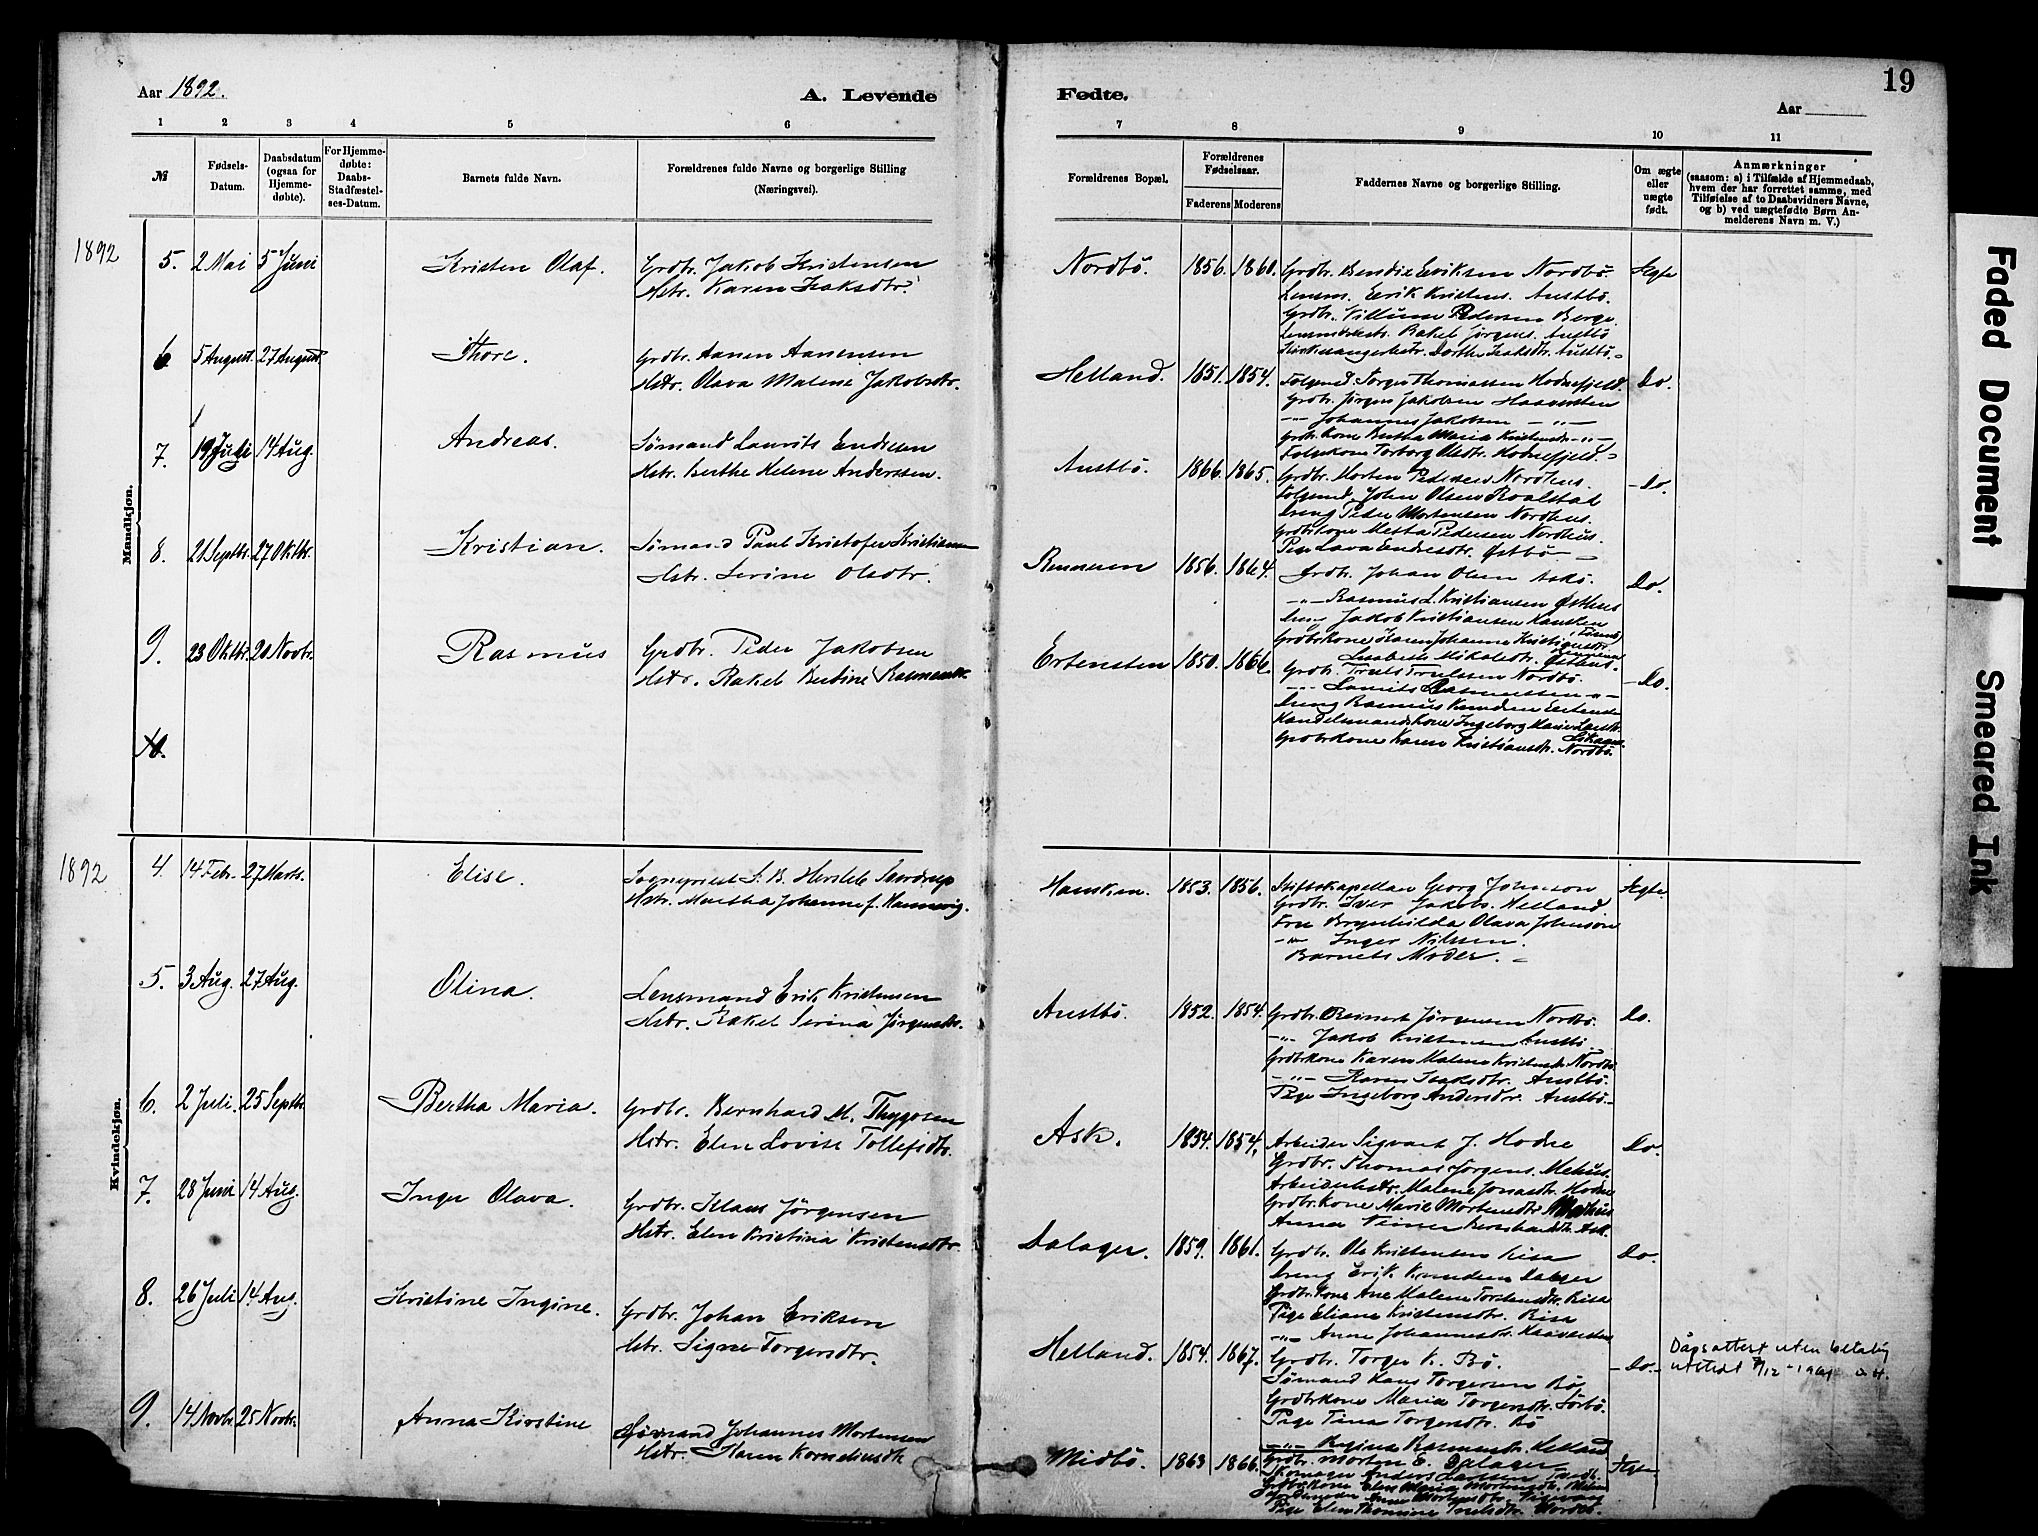 19
Aar 1892.
A. Levende
Fødte.
Aar
1 2 3 4 5 6
7 8 9 10 11
№
Fødsels-Datum.
Daabsdatum (ogsaa for Hjemmedøbte).
For Hjemmedøbte: Daabs-Stadfæstelses-Datum.
Barnets fulde Navn.
Forældrenes fulde Navne og borgerlige Stilling (Næringsvei).
Forældrenes Bopæl.
Forældrenes Fødselsaar.
Faderens Moderens
Faddernes Navne og borgerlige Stilling.
Om ægte eller uægte født.
Anmærkninger
(saasom: a) i Tilfælde af Hjemmedaab,
hvem der har forrettet samme, med
Tilføielse af to Daabsvidners Navne,
og b) ved uægtefødte Børn An-
melderens Navn m. V.)
Mandkjøn.
1892
5. 2 Mai 5 Juni Kristen Olaf. Grdbr. Jakob Kristensen
Hstr. Karen Isaksdtr.
Nordbö. 1856. 1860. Grdbr. Bendix Eriksen Nordbö. Ægte
Lensm. Eerik Kristens. Austbö.
Grdbr. Villum Pedersen Berge.
Rakel Jörgens. Austbö
Dorthe Isaksdtr. Austbö.
6 5 August. 27 August Thore. Grdbr. Aanen Aanensen
Hstr. Olava Malene Jakobsdtr.
Helland. 1851. 1854. Torger Thomassen Hodnefjeld. Do.
Grdbr. Jörgen Jakobsen Haavarsten
-"- Johannes Jakobsen -"-
Grdbr. Kone Bertha Maria Kristensdtr -"-
Torborg Olsdtr. Hodnefjeld.
7. 19 Juli 14 Aug. Andreas. Sömand Laurits Endresen
Hstr. Berthe Helene Anderssen.
Austbö. 1866. 1865. Grdbr. Morten Pedersen Nordhus. Do.
John Olsen Roalstad
Dreng Peder Mortensen Nordhus.
Grdbrkone Metta Pedersen Nordhus.
Pige Lava Endresdtr. Østbö
8. 21 Septbr. 27 Oktbr. Kristian. Sömand Paul Kristofer Kristiansen
Hstr. Serine Olsdtr.
Rennesen 1856. 1864. Grdbr. Johan Olsen Askö. Do.
-"- Rasmus L. Kristiansen Østhus
Dreng Jakob Kristiansen Hausken
Grdbrkone Karen Johanne Kristiansdtr.
Lisabeth Mikalsdtr. Østhus.
9. 23 Oktbr. 20 Novbr. Rasmus Grdbr. Peder Jakobsen
Hstr. Rakel Bertine Rasmusdtr.
Ertensten 1850. 1866. Grdbr. Truls Trulssen Nordbö. Do.
-"- Laurits Rasmussen -"-
Dreng Rasmus Knudsen Ertensten
Handelsmandskone Ingeborg Marie Larsdtr.
Grdbrkone Karen Kristiansdtr. Nordbö.
10.
Kvindekjøn.
1892
4. 14 Febr. 27 Marts. Elise. Sogneprest S. B. Hersleb Sverdrup
Hstr. Martha Johanne f. Hannevig.
Hausken. 1853. 1856. Stiftskapellan Georg Johnson Ægte.
Grdbr. Iver Jakobs. Helland
Fru Brynhilda Olava Johnson
-"- Inger Nilssen.
Barnets Moder.
5. 3 Aug. 27 Aug. Olina. Lensmand Erik Kristensen
Hstr. Rakel Serina Jörgensdtr.
Austbö. 1852. 1854. Grdbr. Reinert Jörgensen Nordbö. Do.
-"- Jakob Kristensen Austbö
Grdbrkone Karen Malene Kristensdtr Nordbö.
-"- Karen Isaksdtr. Austbö.
Pige Ingeborg Andersdtr. Austbö.
6. 2 Juli. 25 Septbr. Bertha Maria. Grdbr. Bernhard M. Thygosen
Hstr. Elen Lovise Tollefsdtr.
Ask. 1854. 1854. Arbeider Sigvart J. Hodne Do.
Grdbr. Thomas Jörgens. Mehus.
Arbeiderhstr. Malene Jonasdtr. Hodne
Grdbr. Kone Marie Mortensdtr Mehus
Anna Bernhardtr. Ask.
7. 28 Juni 14 Aug. Inger Olava. Grdbr. Klaus Jörgensen
Hstr. Elen Kristina Kristensdtr.
Dalager. 1859. 1861. Grdbr. Ole Kristensen Risa Do.
Dreng Erik Knudsen Dalager
Grdbr. Kone Ane Malene Torstensdtr. Risa
Pige Eliane Kristensdtr. Risa
-"- Anne Johannesdtr. Haavarsten
8. 26 Juli 14 Aug. Kristine Ingine. Grdbr. Johan Eriksen
Hstr. Signe Torgersdtr.
Helland. 1854. 1867. Grdbr. Torger K. Bö. Do.
Sömand Hans Torgersen Bö
Grdbrkone Maria Torgersdtr. Sörbö.
Pige Tina Torgersdtr. Bö
-"- Regina Rasmusdtr. Helland
Dåpsattest uten betaling
utstedt 7/12-1961
9. 14 Novbr. 25 Novbr. Anna Kirstine Sömand Johannes Mortensen
Hstr. Karen Korneliusdtr
Midbö. 1863 1866. Grdbr. Morten E. Dalager Ægte
Anders Larssen
Grdbrkone Elen Maria Mortensdtr.
Pige Elen Thomine Truelsdtr. Nordbö.
Faded Document
Smeared Ink